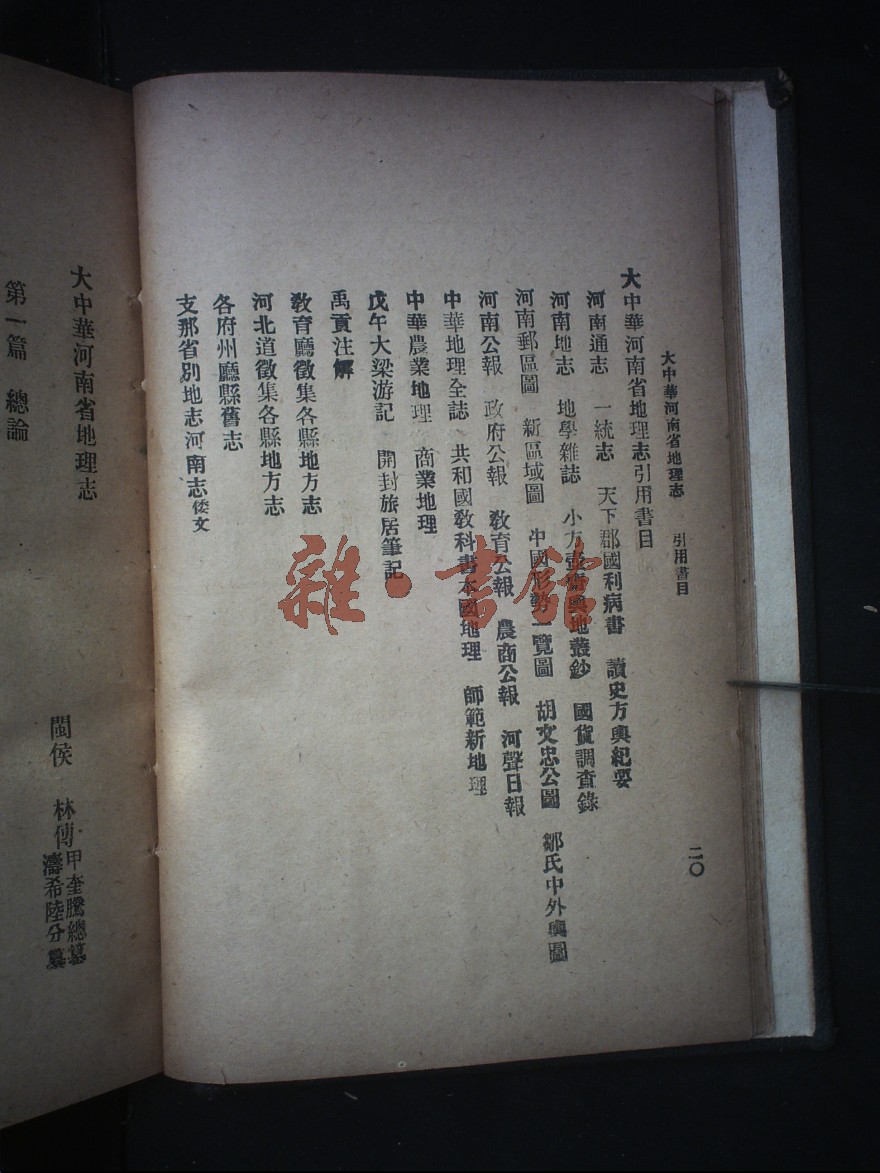 大中華河南省地理志　引用書目
二〇
大中華河南省地理志引用書目
河南通志　一統志　天下郡國利病書　讀史方輿紀要
河南地志　地學雜誌　小方壺齋輿地叢鈔　國貨調查錄
河南郵區圖　新區域圖　中國形勢一覽圖　胡文忠公圖　鄒氏中外輿圖
河南公報　政府公報　教育公報　農商公報　河聲日報
中華地理全誌　共和國教科書本國地理　師範新地理
中華農業地理　商業地理
戊午大梁游記　開封旅居筆記
禹貢注解
教育廳徵集各縣地方志
河北道徵集各縣地方志
各府州廳縣舊志
支那省別地志河南志倭文
大中華河南省地理志
閩侯　林傳甲奎騰總纂
濤希陸分纂
第一篇　總論
雜·書館